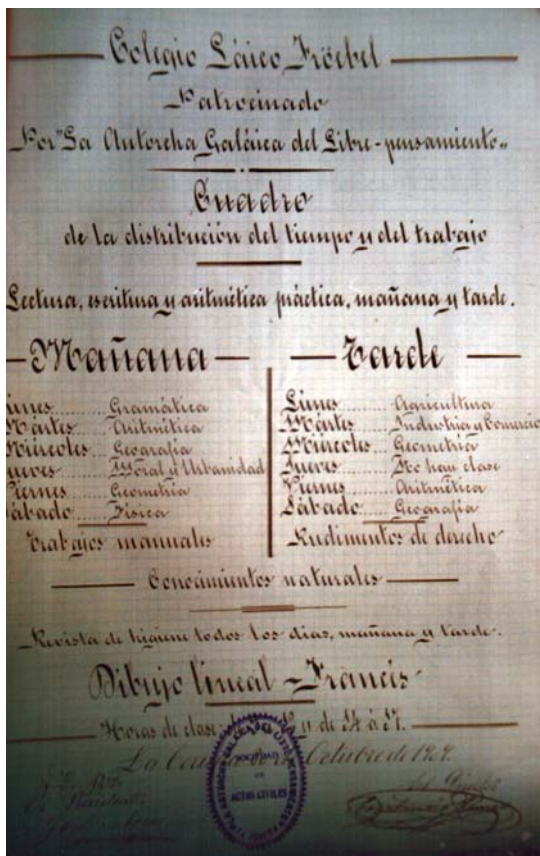 Colegio Láico Fröebel
Patrocinado
Por "La Antorcha Galáica del Libre-pensamiento"
Cuadro
de la distribución del tiempo y del trabajo
Lectura, escritura y aritmética práctica, mañana y tarde.
Mañana
Lunes Gramática
Martes Aritmética
Miércoles Geografía
Jueves Moral y Urbanidad
Viernes Geometría
Sábado Física
Trabajos manuales
Tarde
Lunes Agricultura
Martes Industria y Comercio
Miércoles Geometría
Jueves No hay clase
Viernes Aritmética
Sábado Geografía
Rudimentos de derecho
Conocimientos naturales
Revista de higiene todos los dias, mañana y tarde.
Dibujo lineal - Francés
Horas de clase y de 14 á 17.
La Octubre de 1909.
Presidente
ACTOS CIVILES